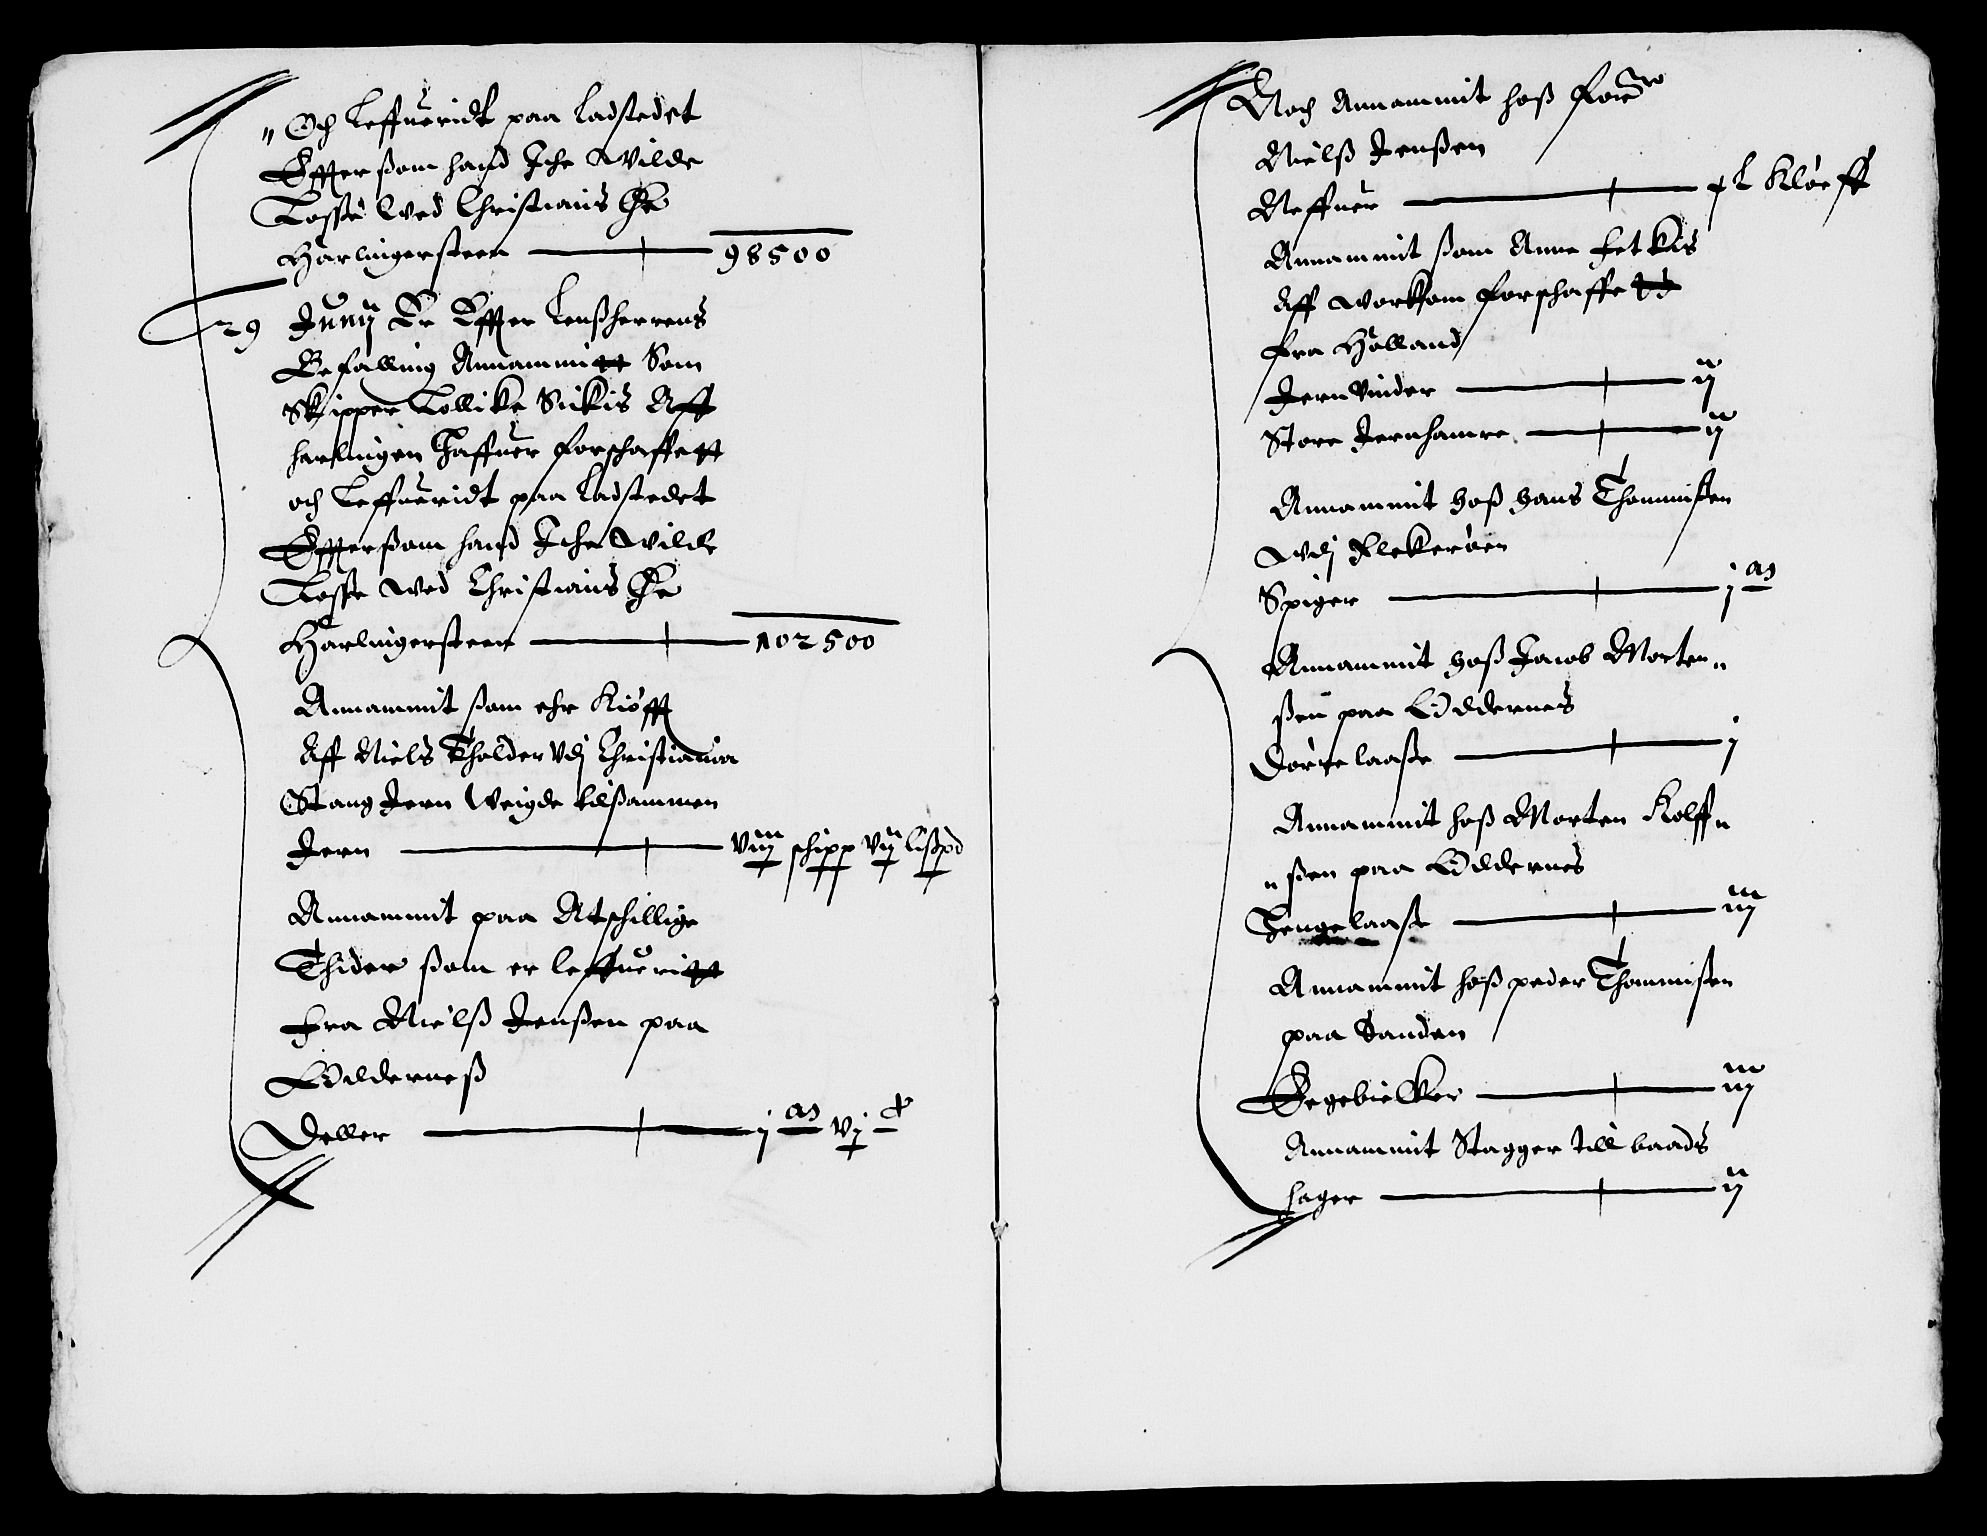 Och Leffueridt paa Ladstedet
Effter ßom hand Iche Wilde
Losse Wed Christians Øe
Harlingersteen 98500
29 Junij Er Effter Lenßherrens
Befalling Annammitt Som
Skipper Tollike Sickis Aff
harlingen Haffuer forschaffett
och Leffueridt paa Ladstedet
Efftersom hand Iche Wilde
Losse wed Christians Øe
Harlingersteen 102500
Annammit ßom ehr Kiøfft
Aff Niels Tholder Vdj Christiania
Stang Jern Weigde tilßammen
Jern viij schipp vij lißpd
Annammit paa Atschillige
Thider ßom er leffueritt
fra Nielß Jenßen paa
Odderneß
Deller j as vj
Noch Annammit hoß Fore
Nielß Jenßen
Neffuer Kløeff
Annammit ßom Anne Fetkis
Aff workom forschaffett
fra Holland
Jern Vinder ij
Store Jernhamre ij
Annammit hoß Hans Thommißen
Wdj Flekerøen
Spiger j as
Annammit hoß Jacob Morten
ßen paa Oddernes
Dørre laaße j
Annammit hoß Morten Rolff
ßen paa Oddernes
Hengelaaße iij
Annammit hoß peder Thommißen
paa Sanden
Egebielker iij
Annammit Stagger till baads
hager ij